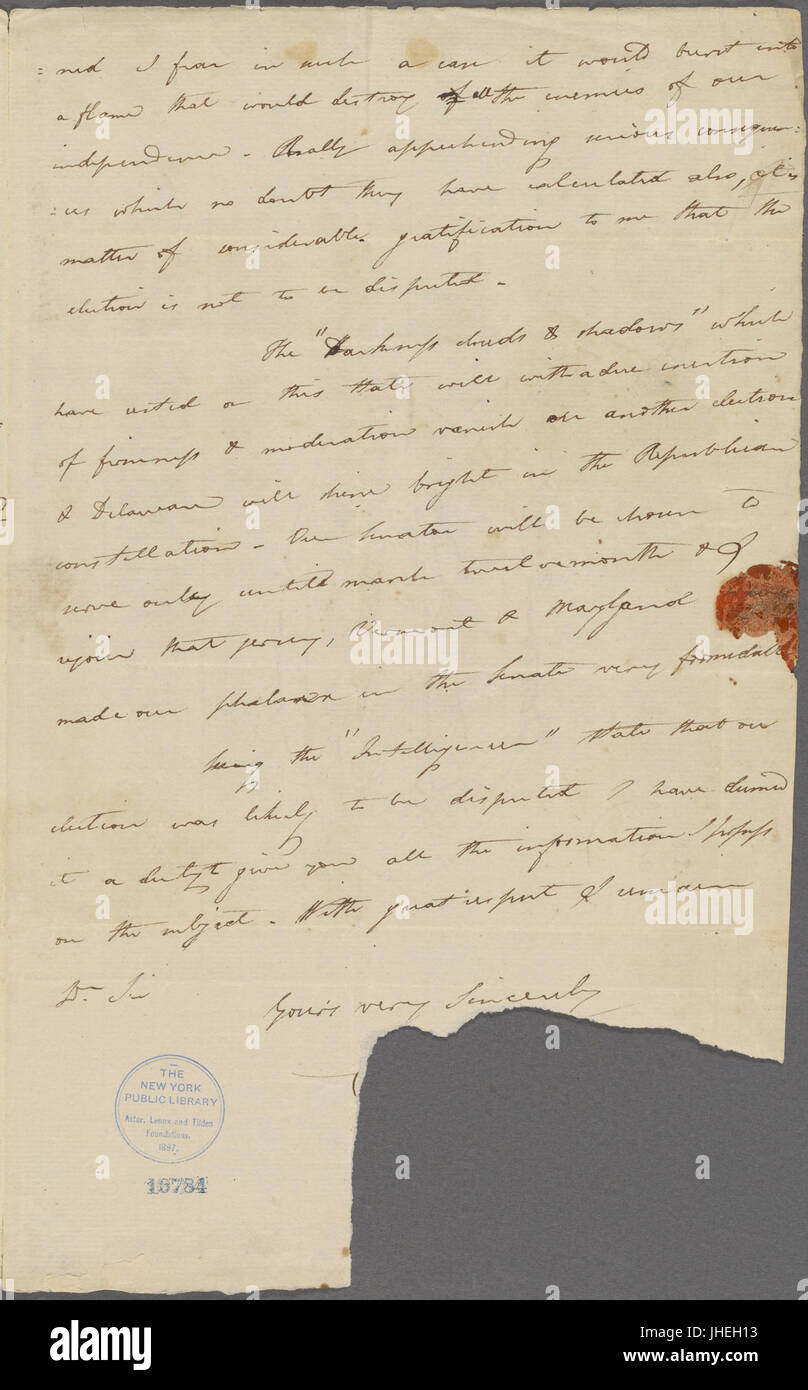 =ned I fear in such a case it would burst into
a flame that would destroy all the enemies of our
independence - Really apprehending serious consequen=
=ces which no doubt they have calculated also, it is
matter of considerable gratification to me that the
election is not to be disputed -
The "Darkness clouds & shadows" which
have rested on this State will with a due exertion
of firmness & moderation vanish at another election
& Delaware will shine bright in the Republican
constellation - Our Senator will be chosen to
serve only until march twelvemonth & I
rejoice that jersey, Vermont & Maryland
made our phalanx in the Senate very formidable
Seeing the "Intelligencer" state that our
election was likely to be disputed I have deemed
it a duty to give you all the information I possess
on the subject - With great respect I remain
Dr Sir
Yours very Sincerely
THE
NEW YORK
PUBLIC LIBRARY
Astor, Lenox and Tilden
Foundations.
1897.
16784
alamy
Image ID: JHEH13
www.alamy.com